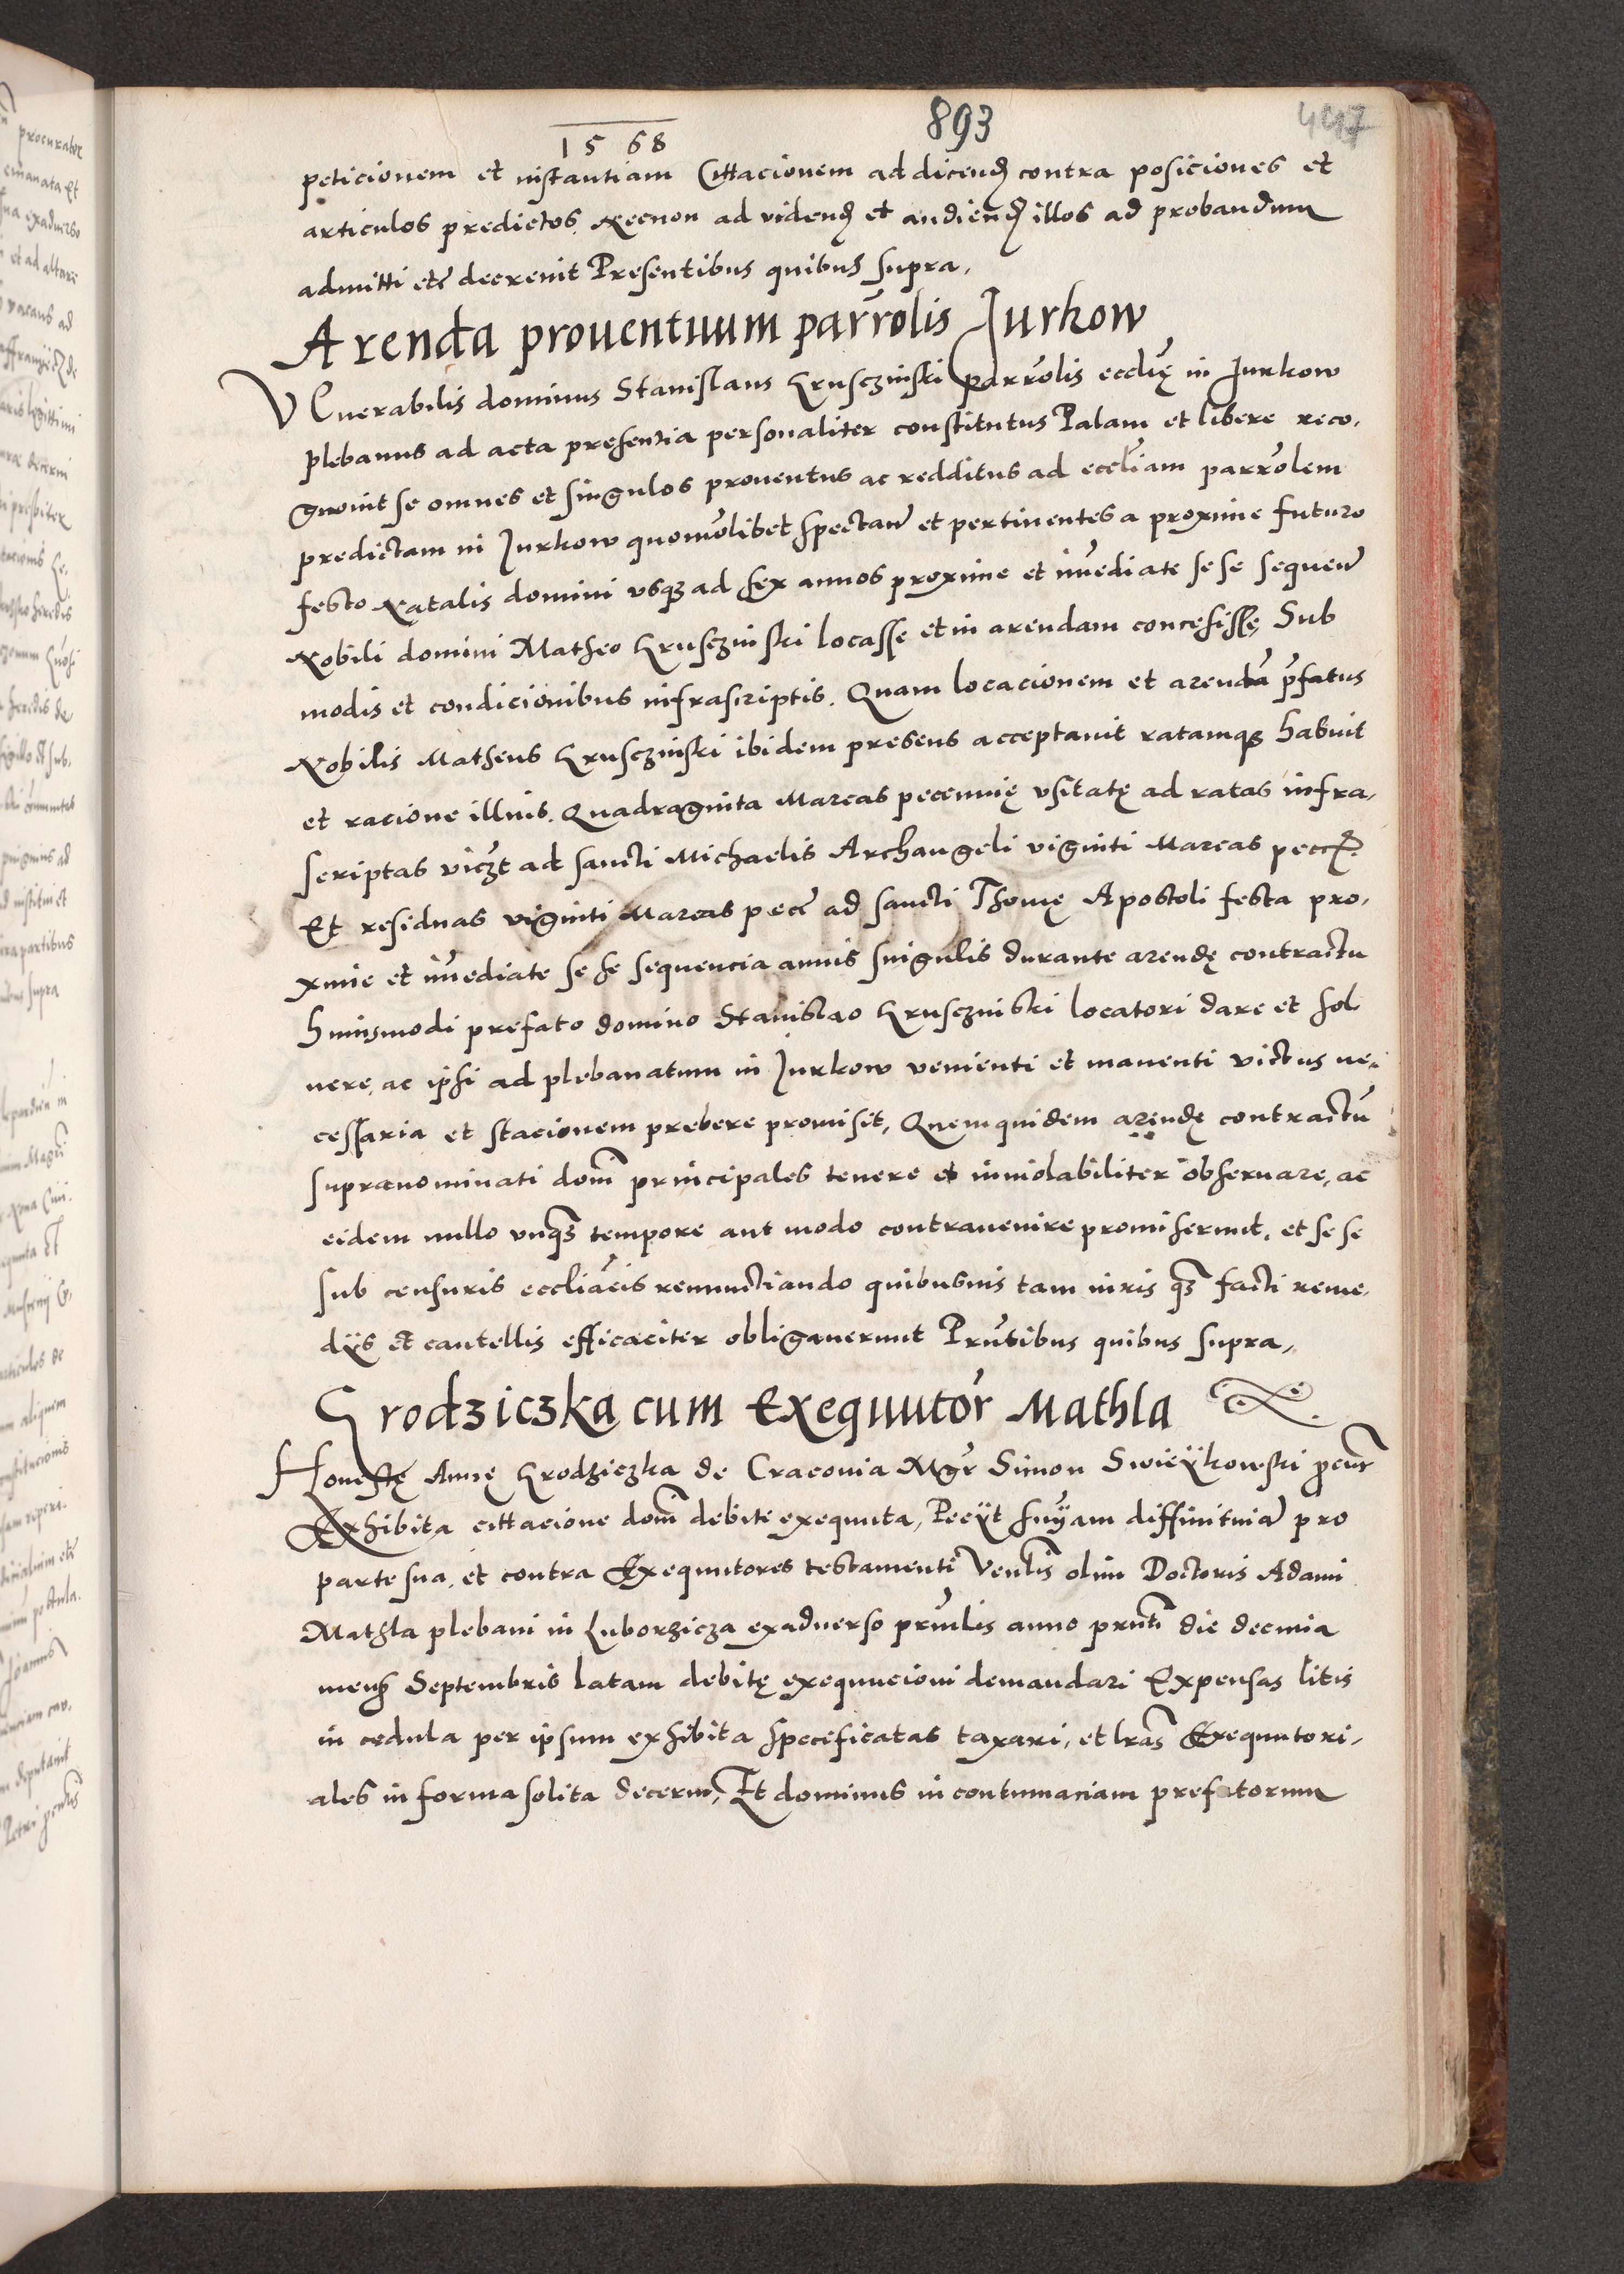 893
447
1568
peticionem et instantiam Cittacionem ad dicend contra posiciones et
articulos predictos Necnon ad vidend et audiend illos ad probandum
admitti etc decrevit Presentibus quibus supra,
Arenda prouentuum parrolis Jurkow
VEnerabilis dominus Stanislaus Grusczinski parrolis ecclię in Jurkow
plebanus ad acta presentia personaliter constitutus Palam et libere reco,
gnouit se omnes et singulos prouentus ac redditus ad eccliam parrolem
predictam in Jurkow quomolibet spectan et pertinentes a proxime futuro
festo Natalis domini vsq ad sex annos proxime et imediate se se sequen
Nobili domini Matheo Grusczinski locasse et in arendam concessisse, Sub
modis et condicionibus infrascriptis. Quam locacionem et arendā pfatus
Nobilis Matheus Grusczinski ibidem presens acceptauit ratamq habuit
et racione illius. Quadraginta Marcas pecunię vsitatę ad ratas infra,
scriptas viczt ad sancti Michaelis Archangeli viginti Marcas pecc
Et residuas viginti Marcas pecc ad sancti Thomę Apostoli festa pro,
xime et imediate se se sequencia annis singulis durante arendę contractu
huiusmodi prefato domino Stanislao Grusczinski locatori dare et sol
uere, ac ipsi ad plebanatum in Jurkow venienti et manenti victus ne,
cessaria et stacionem prebere promisit, Quemquidem arendę contractū
supranominati dom principales tenere et inuiolabiliter obseruare, ac
eidem nullo vnq tempore aut modo contrauenire promiserunt, et se se
sub censuris eccliacis renunctiando quibusuis tam iuris q facti reme,
dÿs et cautellis efficaciter obligauerunt Prntibus quibus supra,
Grodziczka cum Exequutor Mathla
Honestę Annę Grodziczka de Cracouia Mgr Simon Swieÿkowski pcur
Exhibita cittacione dom debite exequuta, Peeÿt snÿam diffinitiua pro
parte sua, et contra Exequutores testamenti Venlis olim Doctoris Adami
Mathla plebani in Luborzicza exaduerso prnlis anno prnti die decima
mens Septembris latam debitę exequucioni demandari Expensas litis
in cedula per ipsum exhibita specificatas taxari, et lras Exequutori,
ales in forma solita decerni, Et dominus in contumaciam prefatorum